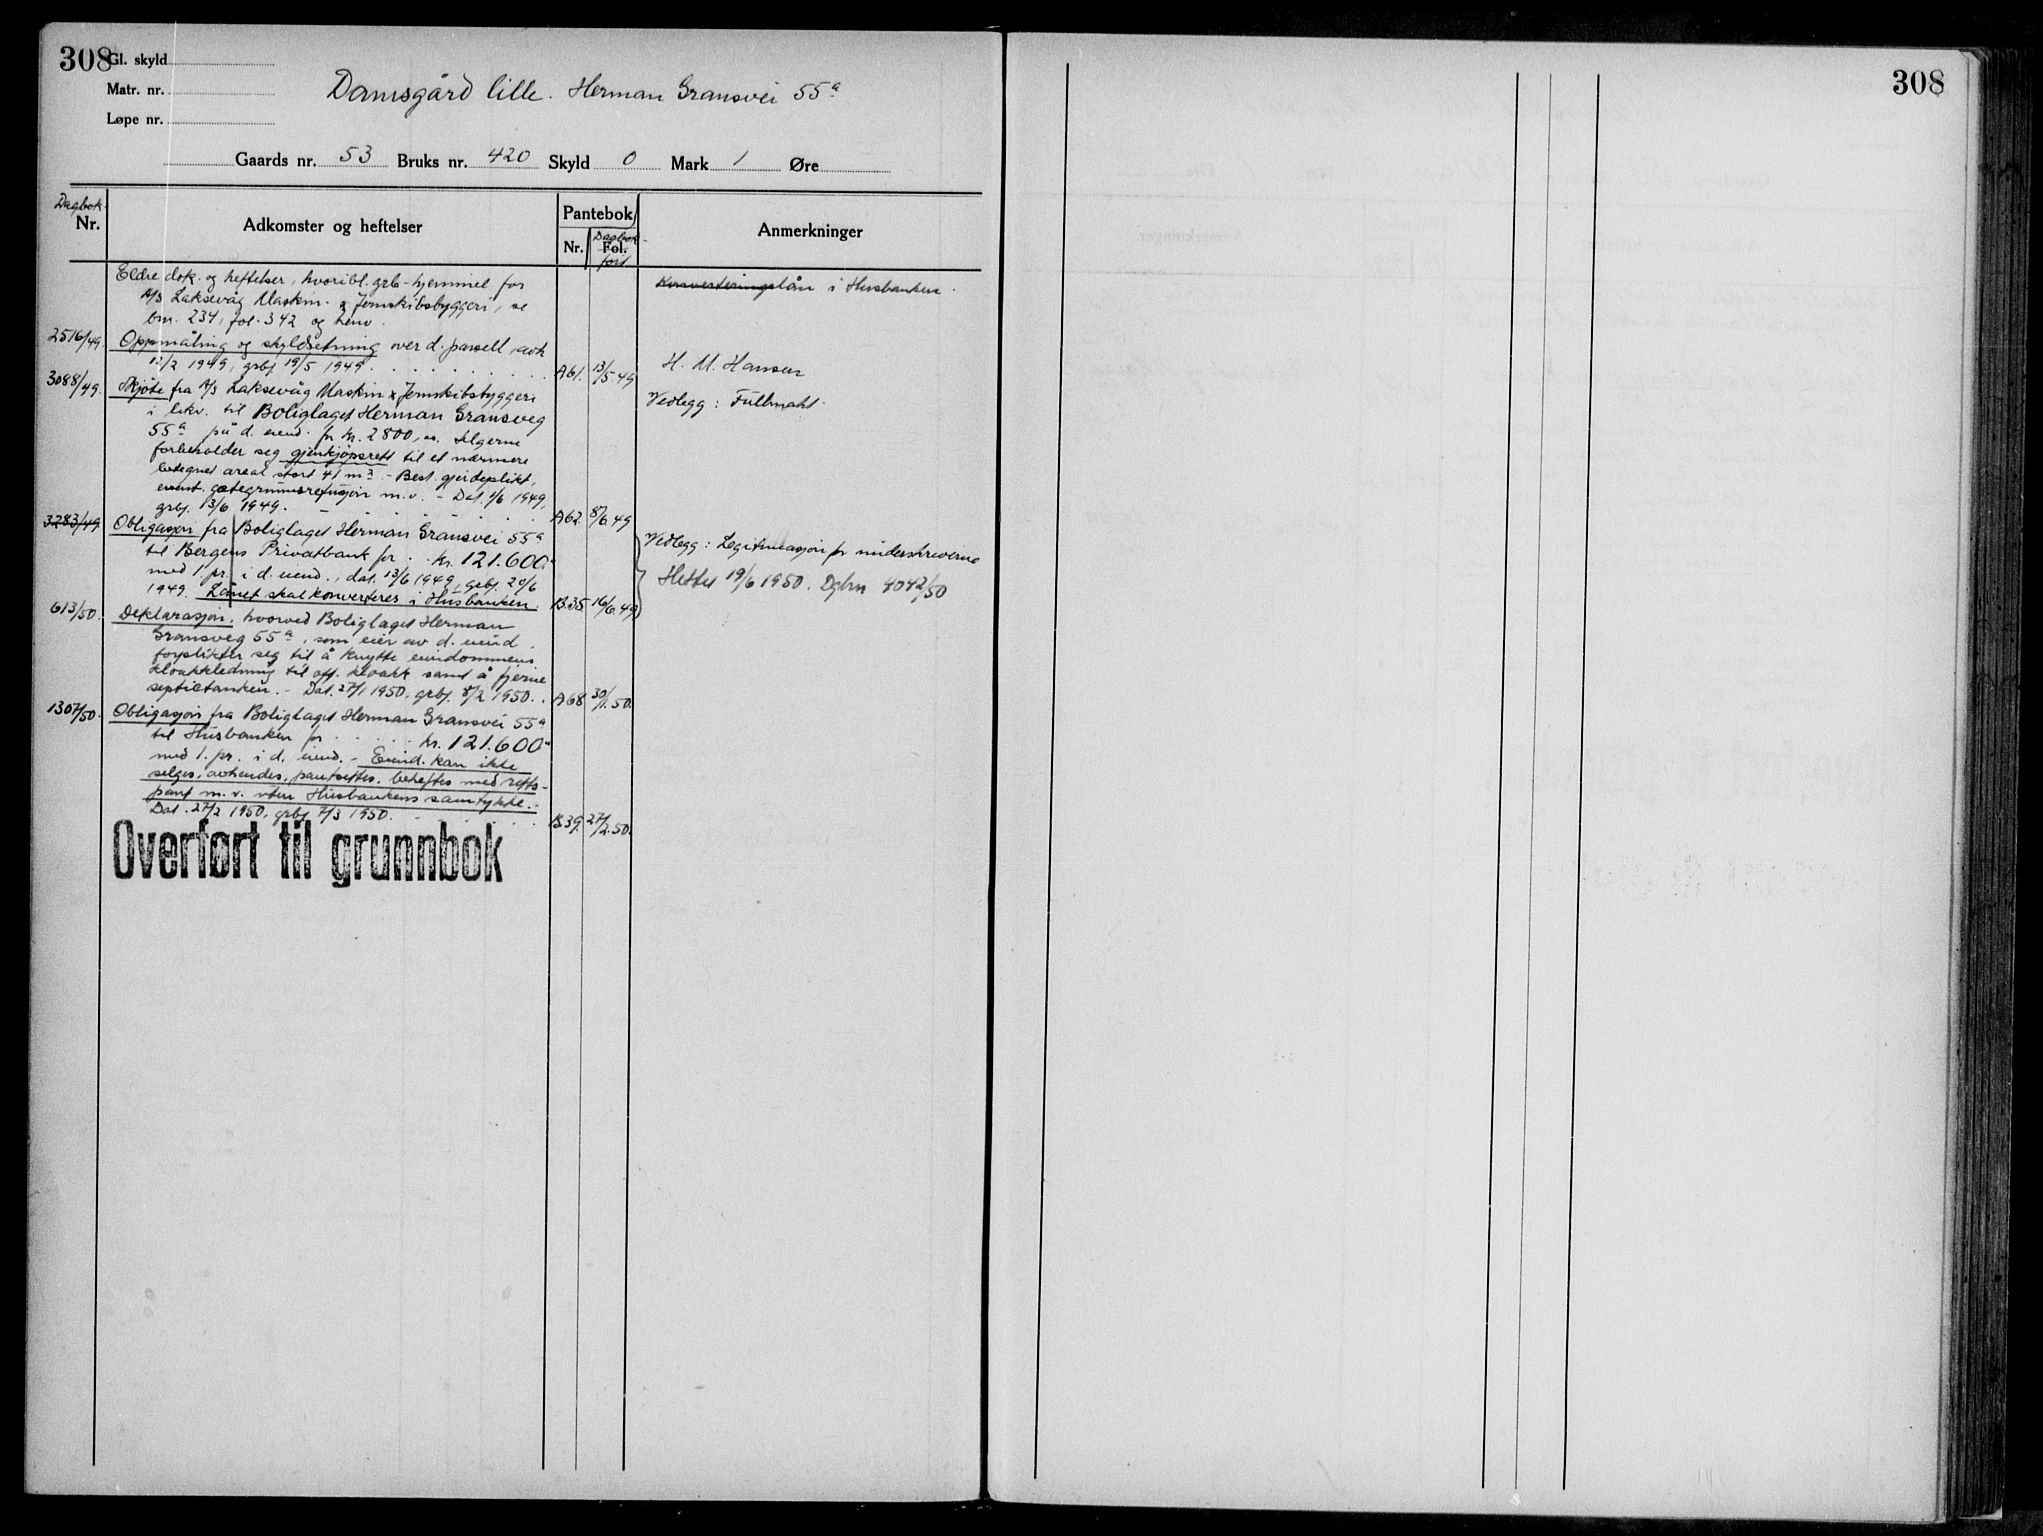 308
Gl. skyld
Matr. nr.
Løpe nr.
Damsgård lille. Herman Gransvei 55ᵃ
Gaards nr. 53 Bruks nr. 420 Skyld 0 Mark 1 Øre
Dagbok-
Nr.
Adkomster og heftelser
Pantebok
Nr.
Dagbok-
Fol.
ført
Anmerkninger
Eldre dok. og heftelser, hvoribl. grb-hjemmel for
A/S Laksevåg Maskin- & Jernskibsbyggeri, se
bnr. 234, fol. 342 og henv.
Konverteringslån i Husbanken.
2516/49. Oppmåling og skyldsetning over d. parsell, avh.
12/2 1949, grbf. 19/5 1949. A61. 13/5 49 H. M. Hansen
3088/49. Skjøte fra A/S Laksevåg Maskin & Jernskibsbyggeri Vedlegg: Fullmakt.
i likv. til Boliglaget Herman Gransveg
55ᵃ på d. eiend. for kr. 2800,00. Selgerne
forbeholder seg gjenkjøpsrett til et nærmere
betegnet areal stort 41 m². - Best. gjerdeplikt,
event. gategrunnsrefusjon m.v. - Dat. 1/6 1949,
grbf. 13/6 1949. A62. 8/6.49
3283/49 Obligasjon fra Boliglaget Herman Gransvei 55ᵃ
til Bergens Privatbank for kr. 121.600.
med 1 pr. i d. eiend., dat. 13/6 1949, grbf. 20/6
1949. Lånet skal konverteres i Husbanken. B.35. 16/6.49
Vedlegg: Legitimasjon for underskriverne
Slettet 19/6 1950. Dgbnr 4042/50
613/50. Deklarasjon, hvorved Boliglaget Herman
Gransveg 55ᵃ, som eier av d. eiend,
forplikter seg til å knytte eiendommens
kloakkledning til off. kloakk samt å fjerne
septictanken. - Dat. 27/1 1950, grbf. 8/2 1950. A68 30/1.50.
1307/50. Obligasjon fra Boliglaget Herman Gransvei 55ᵃ
til Husbanken for kr. 121.600
med 1. pr. i d. eiend. - Eiend. kan ikke
selges, avhendes, pantsettes, beheftes med retts-
pant m.v. uten Husbankens samtykke. -
Dat. 27/2 1950, grbf 7/3 1950. B.39. 27/2.50.
Overført til grunnbok
308